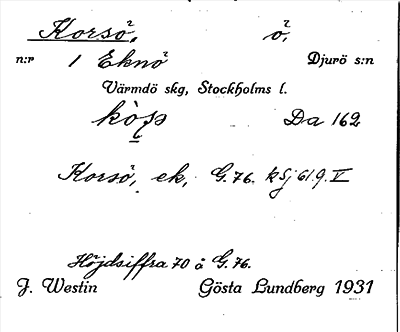 Korsö, ö,
n:r 1 Eknö Djurö s:n
Värmdö skg, Stockholms l.
Da 162
Korsö, ek, G. 76. k Sj 61.9. V
Höjdsiffra 70 å G. 76.
J. Westin Gösta Lundberg 1931